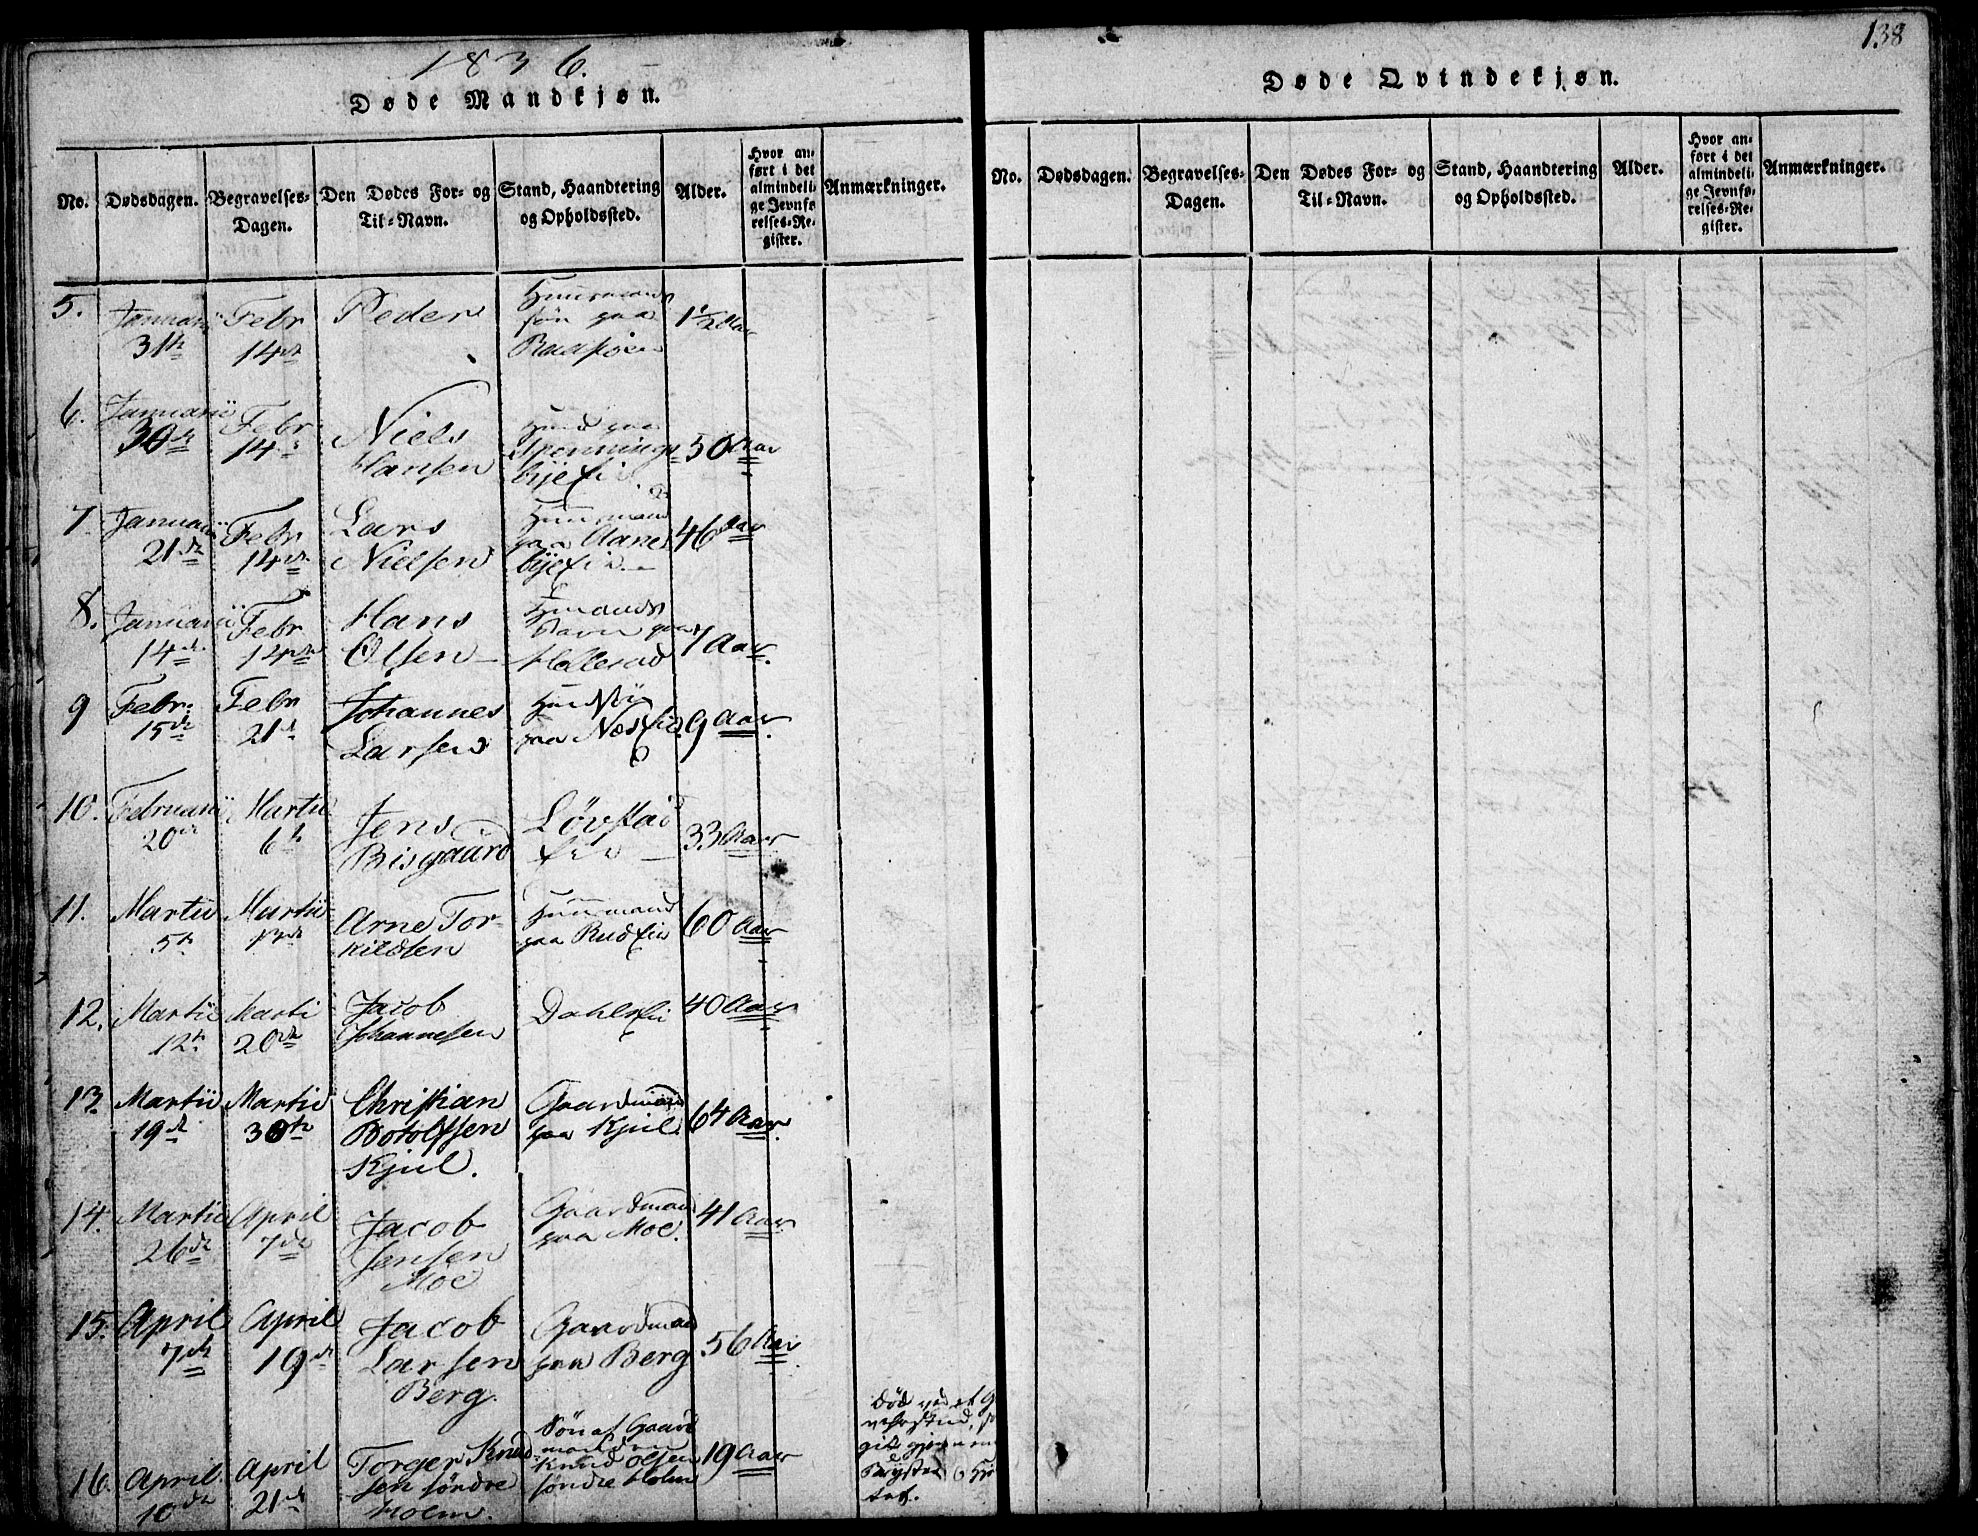 138
1836.
Døde Mandkjøn.
No.
Dødsdagen.
Begravelses-
Dagen.
Den Dødes For- og
Til-Navn.
Stand, Haandtering
og Opholdssted.
Alder.
Hvor an-
ført i det
almindeli-
ge Jevnfø-
relses-Re-
gister.
Anmærkninger.
5.
Januarii
31te
Febr
14de
Peder
Huusmands
søn paa
1½ Aar
6.
Januarii
30de
Febr
14de
Niels
Hansen
Spennings-
bye
50 Aar
7
Januarii
21de
Febr
14de
Lars
Nielsen
Huusmand
paa Aane
bye
46 Aar
8.
Januarii
14de
Febr
14de
Hans
Olsen
Barn paa
Hellerud
1 Aar.
9
Febr.
15de
Febr
21de
Johannes
Larsen
paa Næs
9 Aar.
10.
Februarii
20de
Martii
6te
Jens
Bisgaard
Løvstad
33 Aar
11.
Martii
5te
Martii
13de
Arne Tor-
kildsen
Huusmand
paa Rud
60 Aar
12.
Martii
12te
Marti
20de
Jacob
Johannesen
Dahl
40 Aar
13.
Martii
19de
Martii
30te
Christian
Botolfsen
Kjul.
Gaardmand
paa Kjul.
64 Aar.
14.
Martii
26de
April
7de
Jacob
Jensen
Moe
Gaardmand
paa Moe.
41 Aar
15.
April
7de
April
19de
Jacob
Larsen
Berg.
Gaardmand
paa Berg
56 Aar
16.
April
10de
April
21de
Torger Knud-
sen søndre
Holm.
Søn af Gaard
manden
Knud Olsen
søndre Holm
19 Aar
Død ved et
gik gjennem
Brystet
Døde Qvindekjøn.
No.
Dødsdagen.
Begravelses-
Dagen.
Den Dødes For- og
Til-Navn.
Stand, Haandtering
og Opholdssted.
Alder.
Hvor an-
ført i det
almindeli-
ge Jevnfø-
relses-Re-
gister.
Anmærkninger.